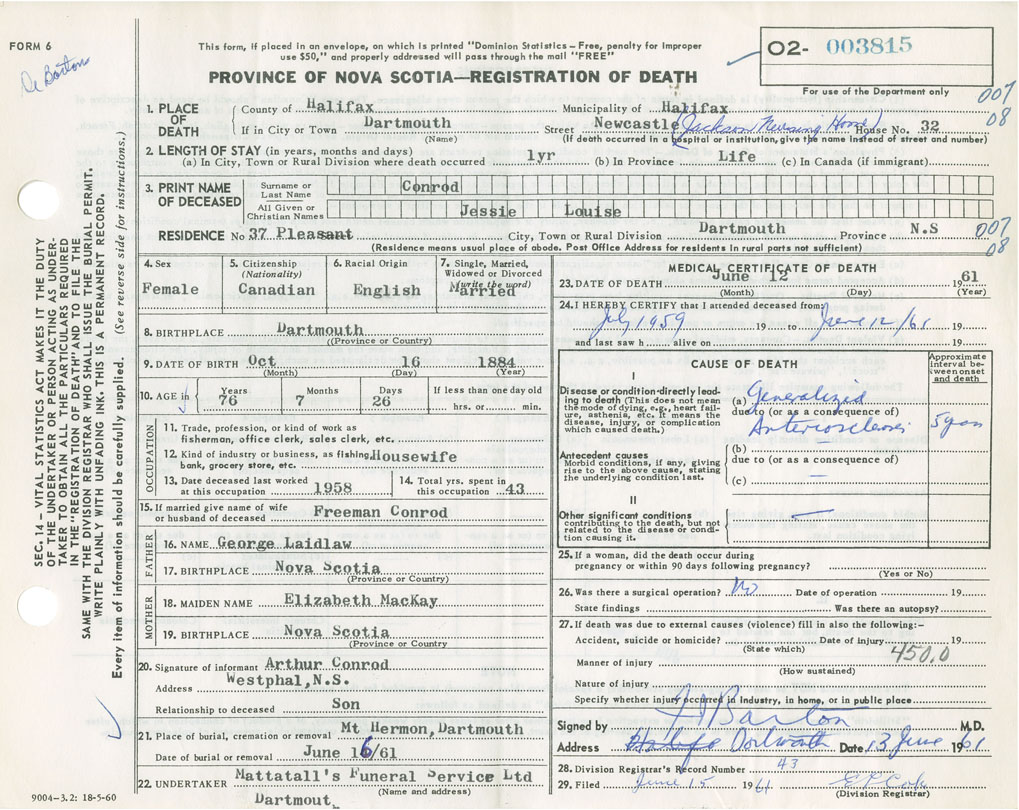 FORM 6
De Barton
This form, if placed in an envelope, on which is printed "Dominion Statistics — Free, penalty for improper
use $50," and properly addressed will pass through the mail "FREE"
PROVINCE OF NOVA SCOTIA—REGISTRATION OF DEATH
O2- 003815
For use of the Department only
SEC. 14 – VITAL STATISTICS ACT MAKES IT THE DUTY
OF THE UNDERTAKER OR PERSON ACTING AS UNDER-
TAKER TO OBTAIN ALL THE PARTICULARS REQUIRED
IN THE "REGISTRATION OF DEATH" AND TO FILE THE
SAME WITH THE DIVISION REGISTRAR WHO SHALL ISSUE THE BURIAL PERMIT.
WRITE PLAINLY WITH UNFADING INK. THIS IS A PERMANENT RECORD.
Every item of information should be carefully supplied. (See reverse side for instructions.)
1. PLACE OF DEATH
County of Halifax Municipality of Halifax
007
08
If in City or Town Dartmouth Street Newcastle (Jackson Nursing Home) House No. 32
(Name) (If death occurred in a hospital or institution, give its name instead of street and number)
2. LENGTH OF STAY (in years, months and days)
(a) In City, Town or Rural Division where death occurred 1yr (b) In Province Life (c) In Canada (if immigrant)
3. PRINT NAME OF DECEASED
Surname or Last Name Conrod
All Given or Christian Names Jessie Louise
RESIDENCE No 37 Pleasant City, Town or Rural Division Dartmouth Province N.S
007
08
(Residence means usual place of abode. Post Office Address for residents in rural parts not sufficient)
4. Sex
Female
5. Citizenship
(Nationality)
Canadian
6. Racial Origin
English
7. Single, Married,
Widowed or Divorced
(write the word)
Married
8. BIRTHPLACE Dartmouth
((Province or Country)
9. DATE OF BIRTH Oct 16 1884
(Month) (Day) (Year)
10. AGE in
Years Months Days If less than one day old
76 7 26 hrs. or min.
OCCUPATION
11. Trade, profession, or kind of work as
fisherman, office clerk, sales clerk, etc.
12. Kind of industry or business, as fishing, Housewife
bank, grocery store, etc.
13. Date deceased last worked
at this occupation 1958
14. Total yrs. spent in
this occupation 43
15. If married give name of wife
or husband of deceased Freeman Conrod
FATHER
16. NAME George Laidlaw
17. BIRTHPLACE Nova Scotia
(Province or Country)
MOTHER
18. MAIDEN NAME Elizabeth MacKay
19. BIRTHPLACE Nova Scotia
(Province or Country
20. Signature of informant Arthur Conrod
Address Westphal, N.S.
Relationship to deceased Son
21. Place of burial, cremation or removal Mt Hermon, Dartmouth
Date of burial or removal June 16/61
22. UNDERTAKER Mattatall's Funeral Service Ltd
(Name and address)
Dartmout
9004-3.2: 18-5-60
MEDICAL CERTIFICATE OF DEATH
23. DATE OF DEATH June 12 1961
(Month) (Day) (Year)
24. I HEREBY CERTIFY that I attended deceased from:
July 1959 19 to June 12/61 19
and last saw h alive on 19
CAUSE OF DEATH
Approximate
interval be-
tween onset
and death
I
Disease or condition directly lead-
ing to death (This does not mean
the mode of dying, e.g., heart fail-
ure, asthenia, etc. It means the
disease, injury, or complication
which caused death.)
(a) Generalized
due to (or as a consequence of)
Arteriosclerosis 5 years
Antecedent causes
Morbid conditions, if any, giving
rise to the above cause, stating
the underlying condition last.
(b)
due to (or as a consequence of)
(c)
II
Other significant conditions
contributing to the death, but not
related to the disease or condi-
tion causing it.
25. If a woman, did the death occur during
pregnancy or within 90 days following pregnancy?
(Yes or No)
26. Was there a surgical operation? No Date of operation 19
State findings Was there an autopsy?
27. If death was due to external causes (violence) fill in also the following:–
Accident, suicide or homicide? Date of injury 19
(State which)
450.0
Manner of injury
(How sustained)
Nature of injury
Specify whether injury occurred in industry, in home, or in public place
Signed by Barton M.D.
Address Halifax Dartmouth Date 13 June 1961
28. Division Registrar's Record Number 43
29. Filed June 15 1961
(Division Registrar)